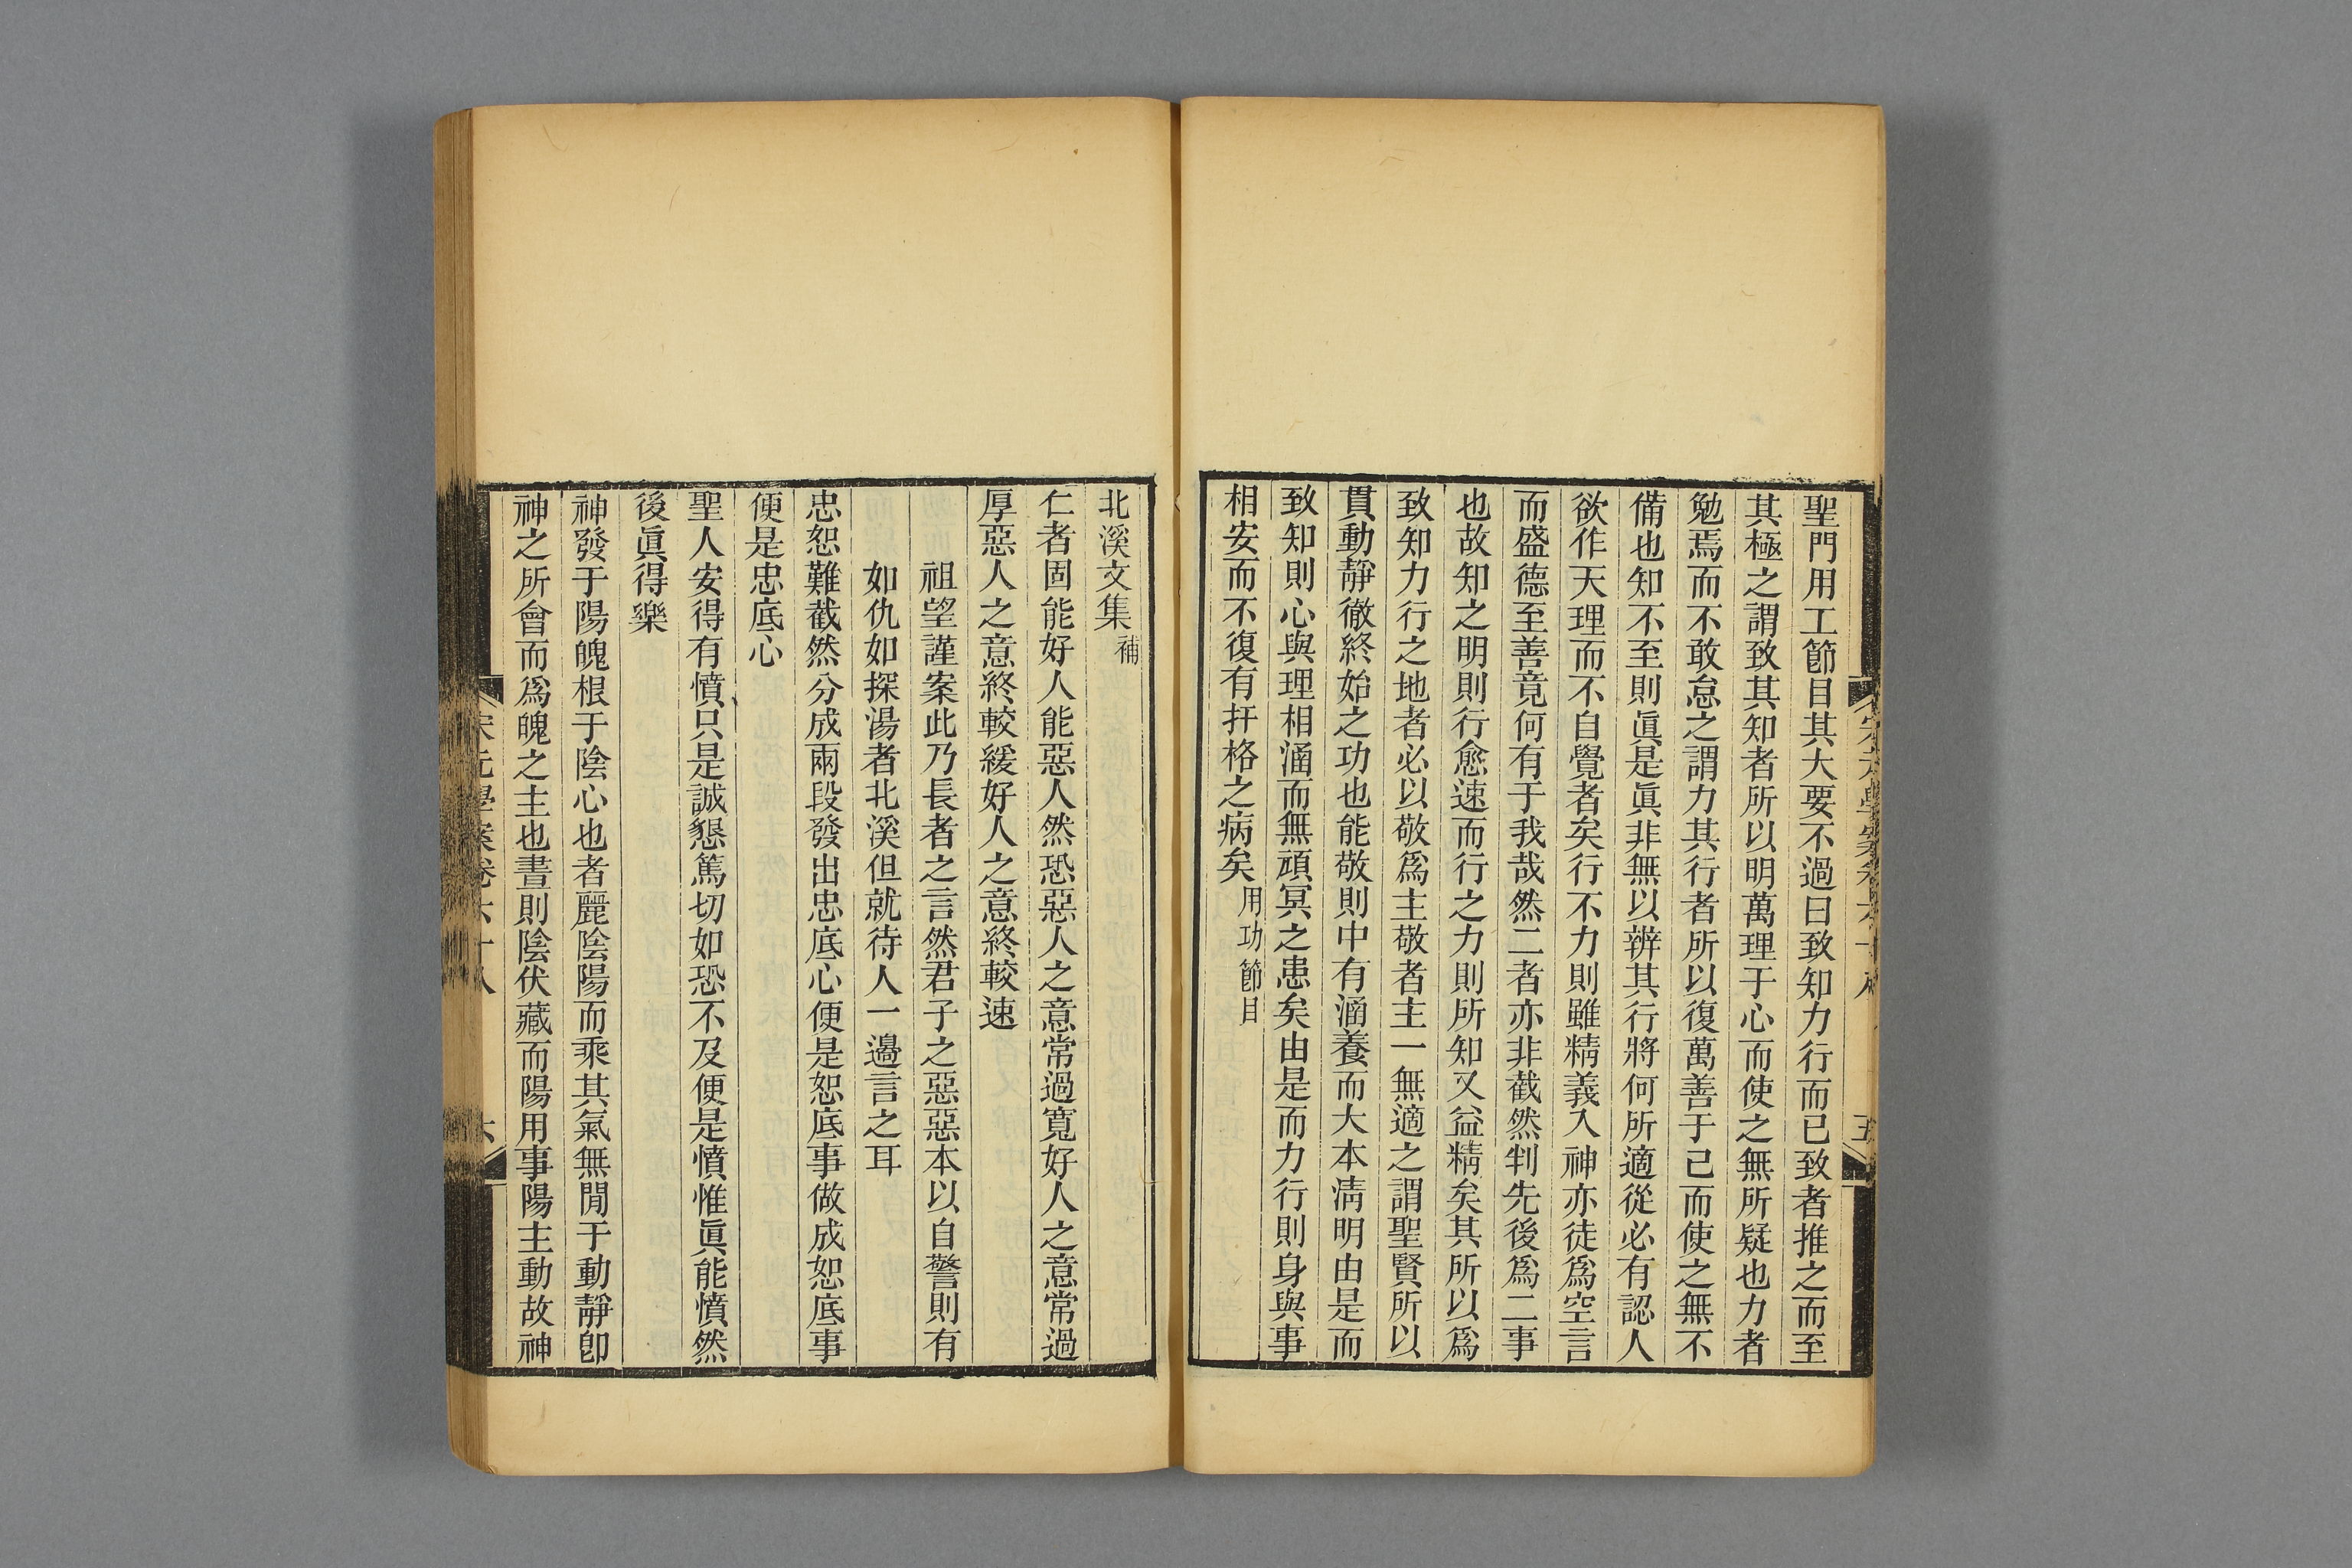 聖門用工節目其大要不過曰致知力行而已致者推之而至
其極之謂致其知者所以明萬理于心而使之無所疑也力者
勉焉而不敢怠之謂力其行者所以復萬善于己而使之無不
備也知不至則眞是眞非無以辨其行將何所適從必有認人
欲作天理而不自覺者矣行不力則雖精義入神亦徒爲空言
而盛德至善竟何有于我哉然二者亦非截然判先後爲二事
也故知之明則行愈速而行之力則所知又益精矣其所以爲
致知力行之地者必以敬爲主敬者主一無適之謂聖賢所以
貫動靜徹終始之功也能敬則中有涵養而大本淸明由是而
致知則心與理相涵而無頑冥之患矣由是而力行則身與事
相安而不復有扞格之病矣用功節目
北溪文集補
仁者固能好人能惡人然恐惡人之意常過寬好人之意常過
厚惡人之意終較緩好人之意終較速
祖望謹案此乃長者之言然君子之惡惡本以自警則有
如仇如探湯者北溪但就待人一邊言之耳
忠恕難截然分成兩段發出忠底心便是恕底事做成恕底事
便是忠底心
聖人安得有憤只是誠懇篤切如恐不及便是憤惟眞能憤然
後眞得樂
神發于陽魄根于陰心也者麗陰陽而乘其氣無閒于動靜卽
神之所會而爲魄之主也晝則陰伏藏而陽用事陽主動故神
宋元學案卷六十八
六